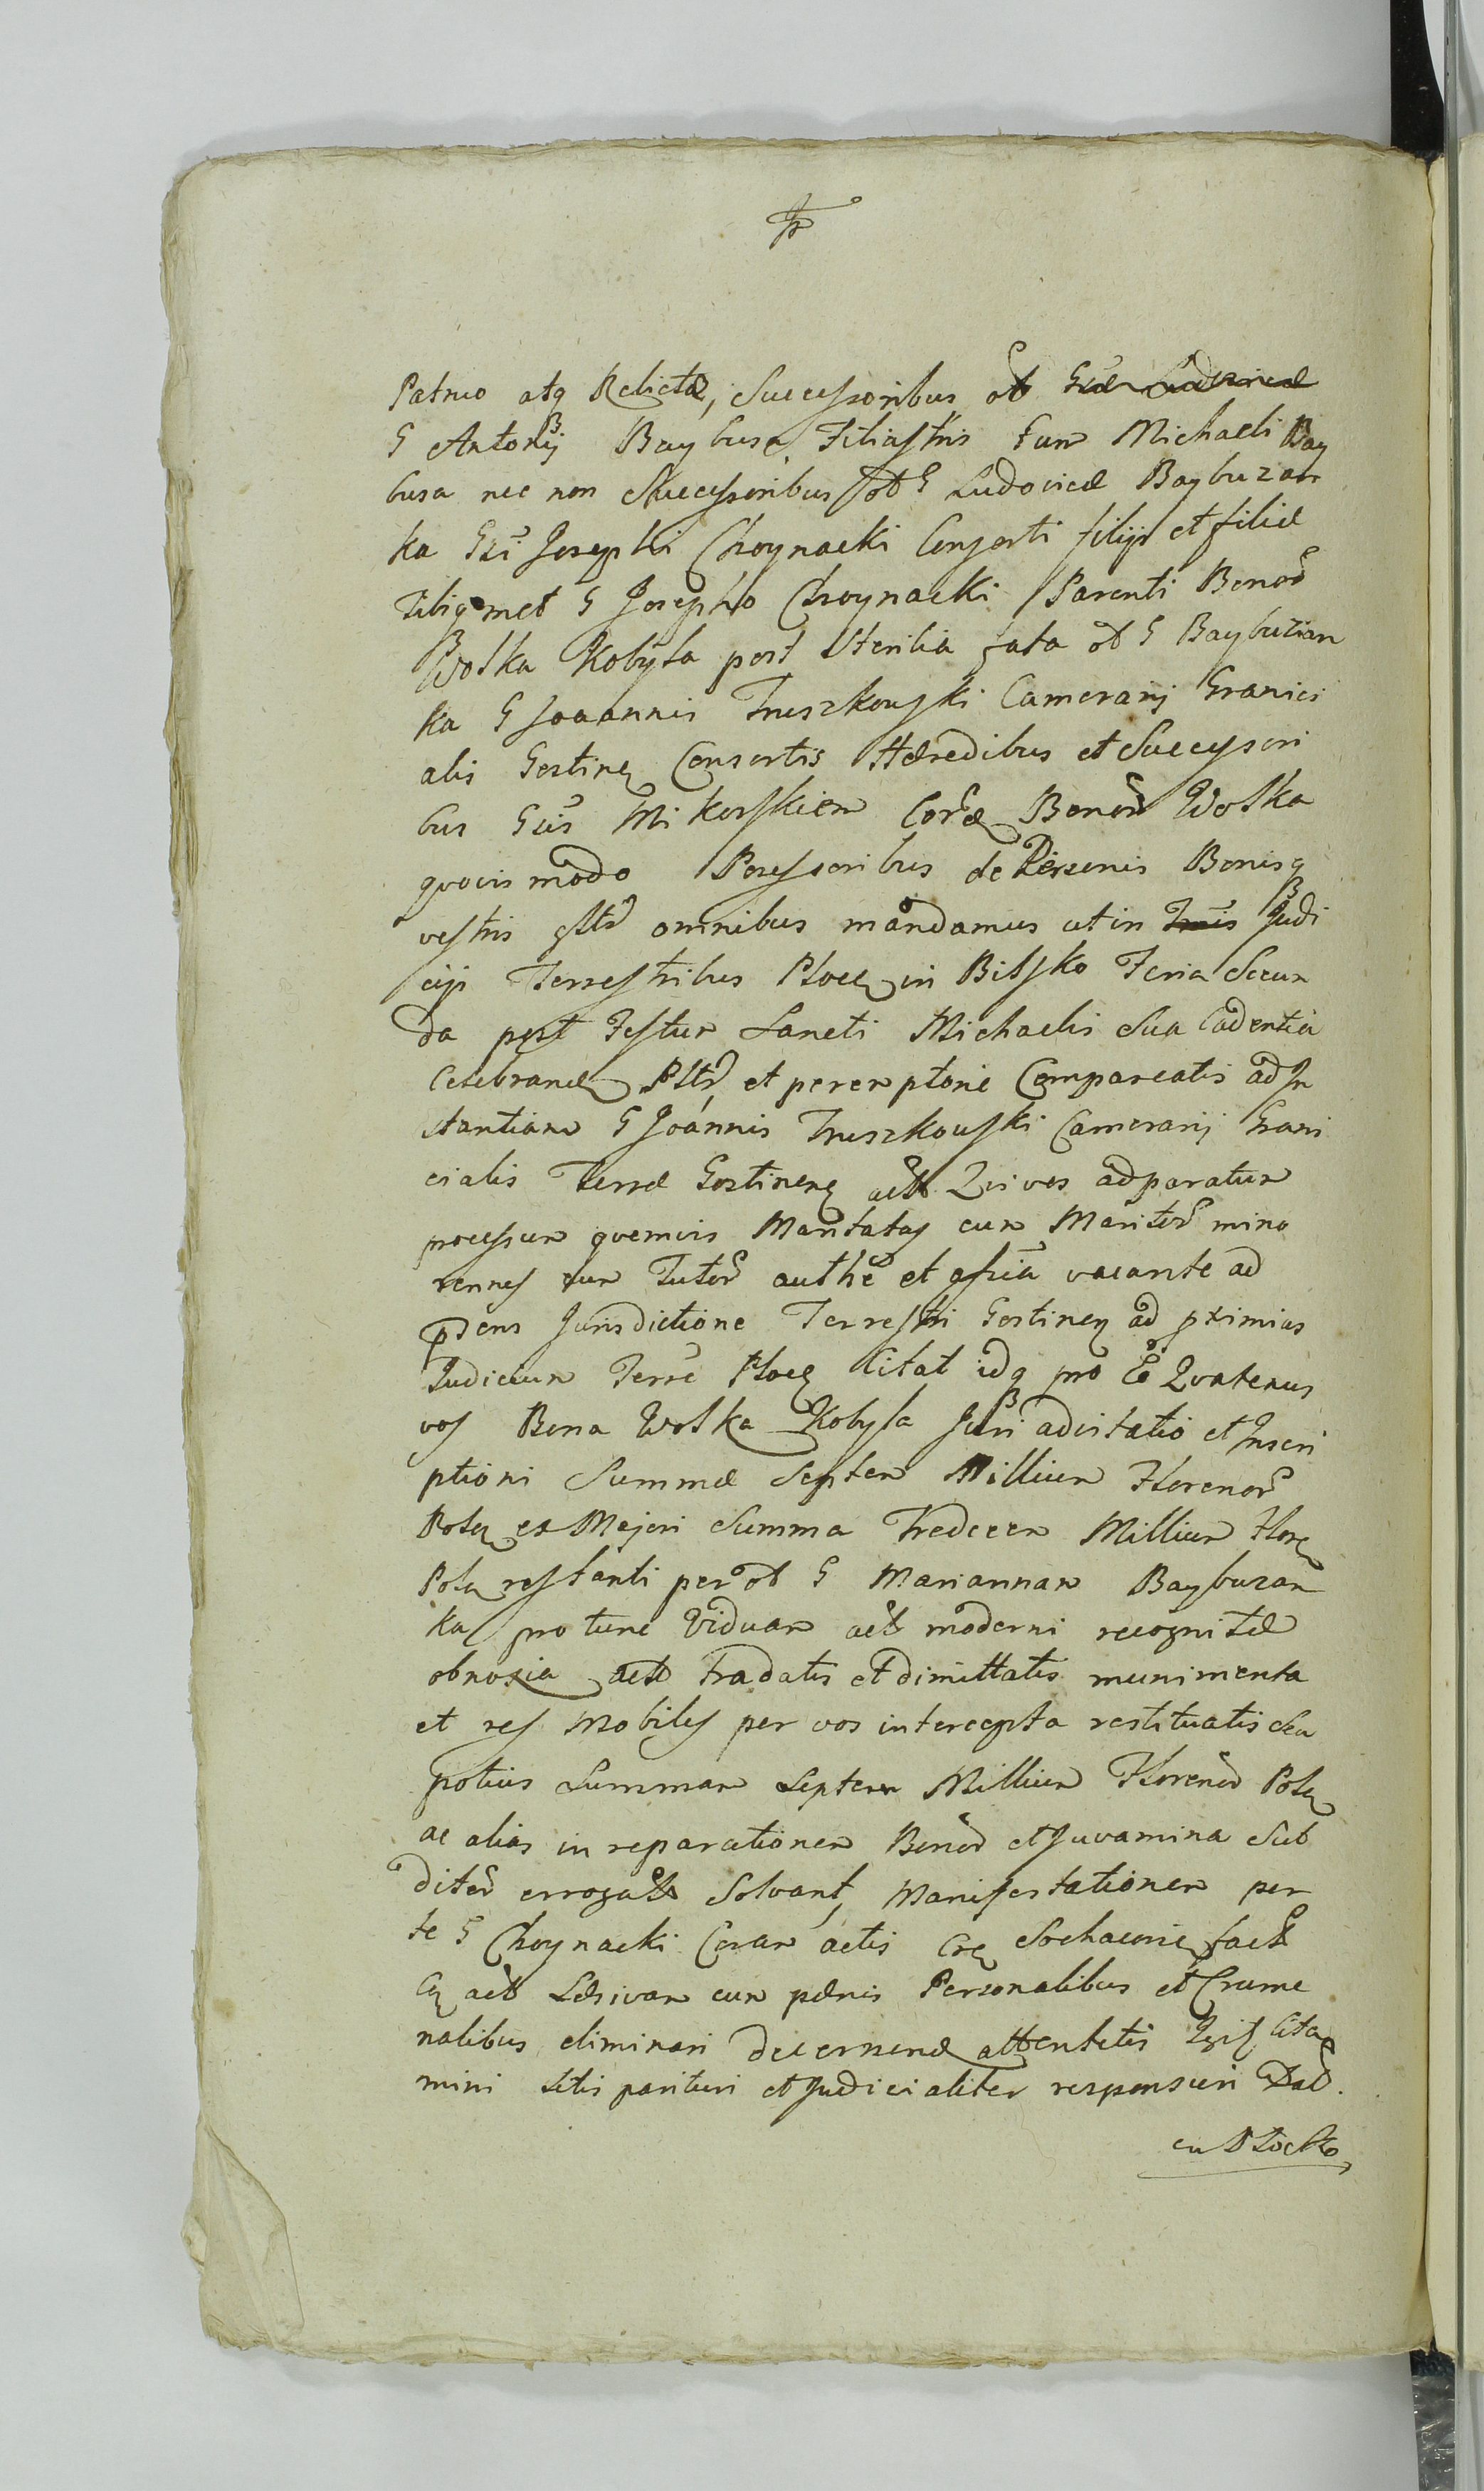 Patruo atq Relictæ, Successoribus ol
G Antonij Baybusa Filiastris Eun Michaeli Bay
busa nec non Successoribus ol G Ludovicæ Baybuzan
ka Gsi Josephi Choynacki Consorti filijs et filiæ
Tibiqmet G Josepho Choynacki Parenti Bonor
Wolka Kobyla post sterilia fata ol G Baybuzian
ka G Joaannis Truszkowski Camerarij Granici
alis Gostinen Consortis Hæredibus et Successori
bus Gsis Mikorskiem Coræ Bonor Wolka
qvovis modo Possessoribus de Personis Bonisq
vestris gltr omnibus mandamus ut in Judi
cijs Terrestribus Plocen in Bilsko Feria Secun
da post Festum Sancti Michaelis Sua Cadentia
Celebrand Pltr et peremptorie Compareatis ad In
stantiam G Joannis Truszkowski Camerarij Grani
cialis Terræ Gostinens act Qui vos ad paratum
processum qvemvis Maritatas cum Maritor mino
rennes cum Tutor authe et assia vacante ad
præsens Jurisdictione Terrestri Gostinen ad proximius
Judicium Terre Plocen Citat idq pro Eo Qvatenus
vos Bona Wolka Kobyla Juri advitatio et Inscri
ptioni Summæ Septem Millium Florenor
Polon ex Majori Summa Tredecem Millium Flor
Polon restanti per ol G Mariannam Baybuzan
ka pro tunc Viduam act moderni recognitæ
obnoxia act tradatis et dimittatis munimenta
et res Mobiles per vos intercepta restituatis Seu
potius Summam Septem Millium Florenor Polon
ac alias in reparationem Bonor et Juvamina Sub
ditor errogat Solvant, Manifestationem per
te G Choynacki Coram actis Cas Sochaconie fact
Cq act Læsivam cum pænis Personalibus et Crume
nalibus eliminari decernend attentetis Cita
mini sitis parituri et Judicialiter responsuri Dat.